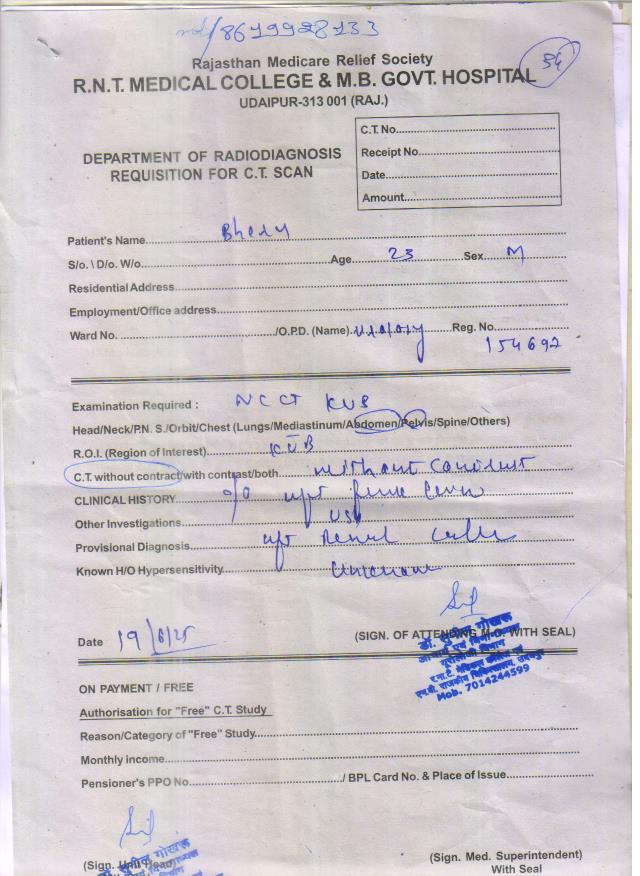 8619928133
34
Rajasthan Medicare Relief Society
R.N.T. MEDICAL COLLEGE & M.B. GOVT. HOSPITAL
UDAIPUR-313 001 (RAJ.)
C.T. No.
Receipt No.
Date
Amount
DEPARTMENT OF RADIODIAGNOSIS
REQUISITION FOR C.T. SCAN
Patient's Name
S/o. \ D/o. W/o. Age 23 Sex M
Residential Address
Employment/Office address
Ward No. /O.P.D. (Name) Urology Reg. No. 154692
Examination Required : NCCT KUB
Head/Neck/P.N. S./Orbit/Chest (Lungs/Mediastinum/Abdomen/Pelvis/Spine/Others)
R.O.I. (Region of Interest) KUB
C.T. without contract/with contrast/both without Contrast
CLINICAL HISTORY
Other Investigations
Provisional Diagnosis Renal
Known H/O Hypersensitivity
Date 19/6/25 (SIGN. OF ATTENDING M.O. WITH SEAL)
डॉ. सुनील गोखरू
Mob. 7014244599
ON PAYMENT / FREE
Authorisation for "Free" C.T. Study
Reason/Category of "Free" Study
Monthly income
Pensioner's PPO No. / BPL Card No. & Place of Issue
(Sign. Unit Head) (Sign. Med. Superintendent)
With Seal